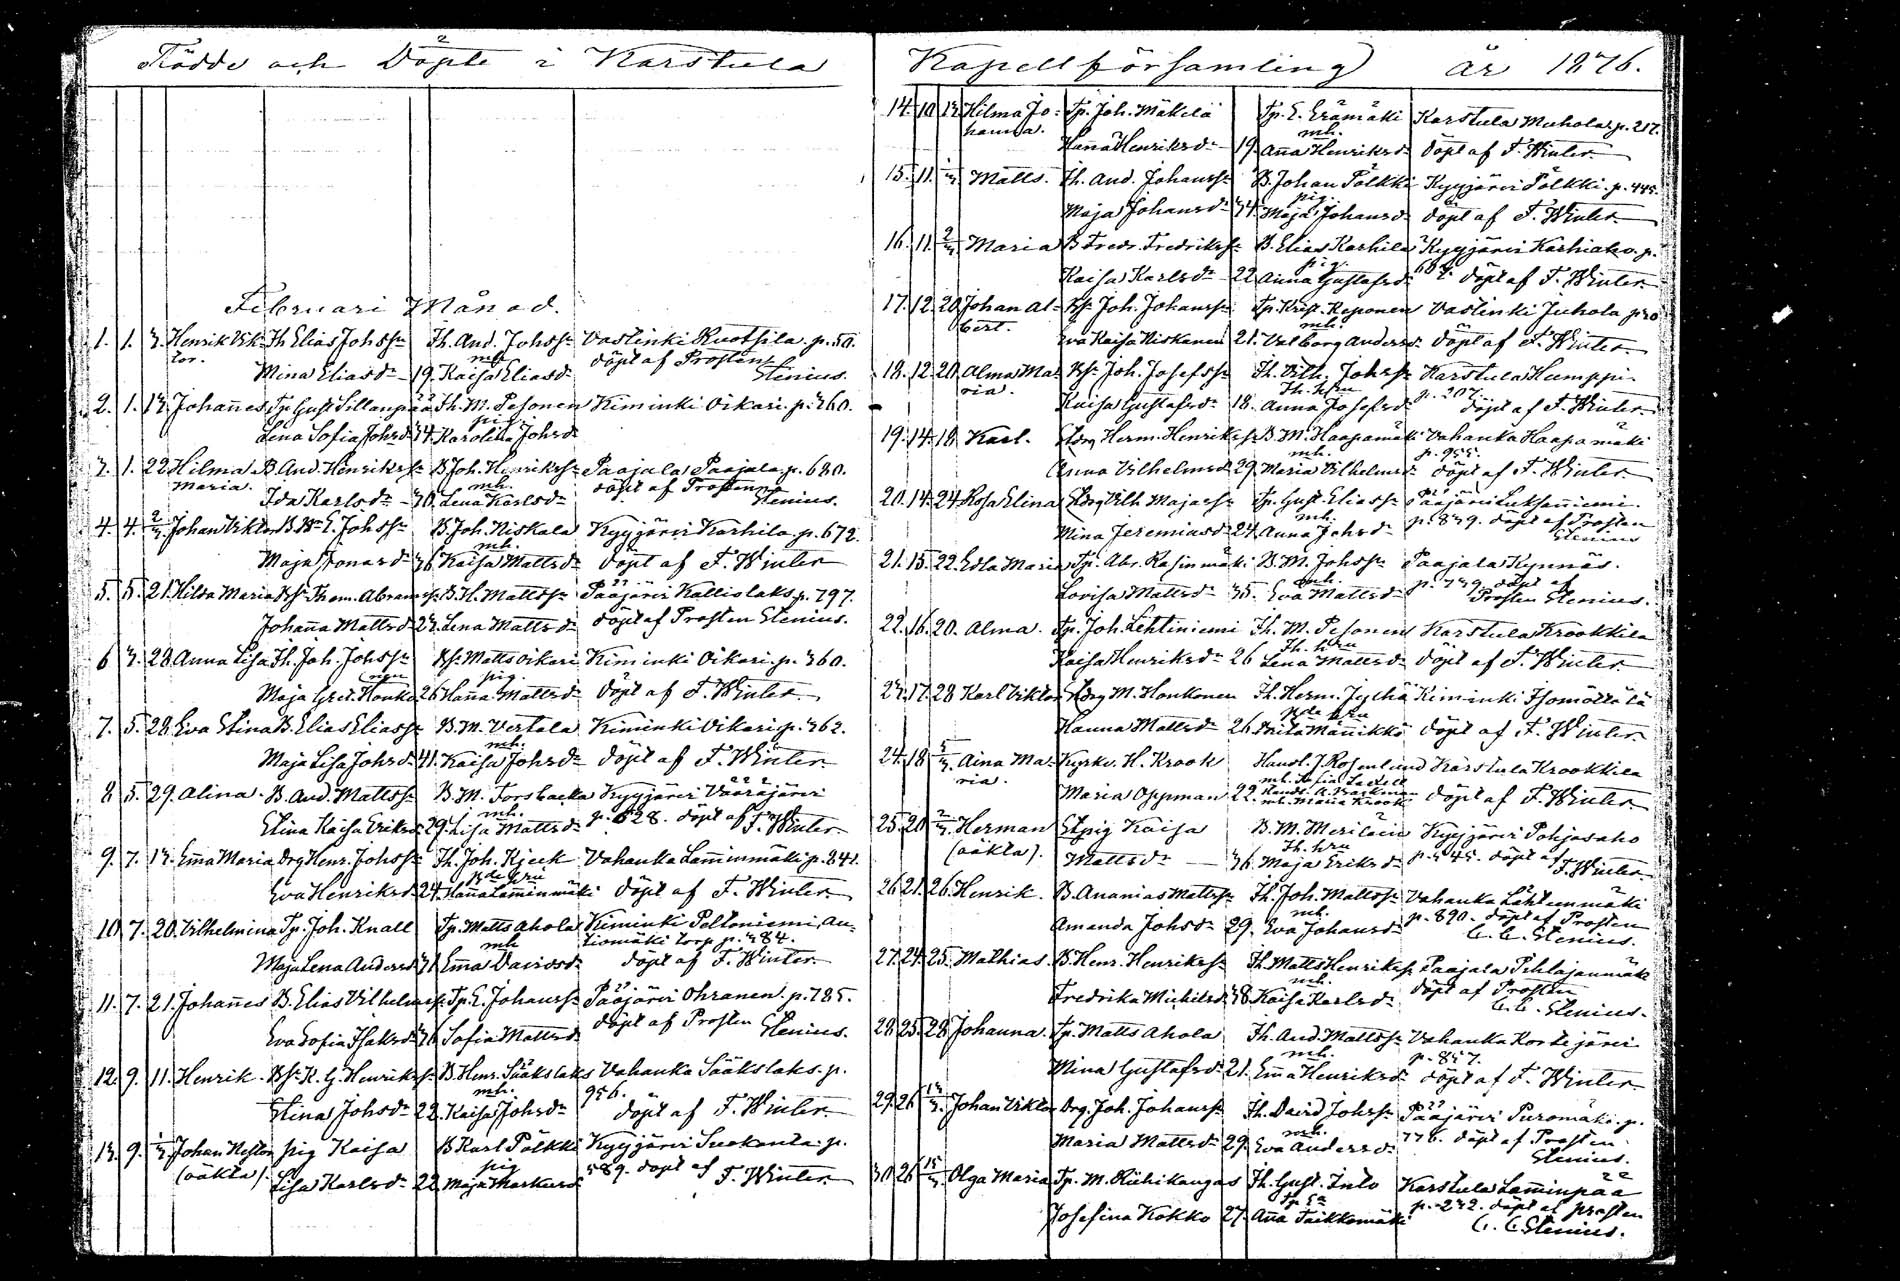 Födde och Döpte i Karstula Kapellförsamling år 1876.
Februari Månad.
1. 1. 3. Henrik Vik- Th Elias Johss: Th. And. Johss: Vastinki Ruotsila. p. 50.
tor. mh. döpt af Prosten
Mina Eliasd: 19. Kaisa Eliasd: Stenius.
2. 1. 13. Johañes Tp. Gust Sillanpää Th. M. Pesonen Kiminki Oikari. p. 360.
pig.
Lena Sofia Johsd: 34. Karolina Johsd:
3. 1. 22. Hilma B. And. Henrikss: B Joh. Henrikss: Paajala Paajala. p. 680.
Maria. mh. döpt af Prosten
Ida Karlsd: 30. Lena Karlsd: Stenius.
4. 4. 2/3. Johan Viktor B. E. Johss: B Joh. Niskala Kyyjärvi Karhila. p. 672.
mh.
Maja Jonasd: 36 Kaisa Mattsd: döpt af F. Winter
5. 5. 21. Hilda Maria Bs: Thom. Abramss: B. H. Mattss: Pääjärvi Kalliolaks. p. 797.
Johaña Mattsd: 23. Lena Mattsd: döpt af Prosten Stenius.
6 3. 28. Anna Lisa Th. Joh. Johss: Bs: Matts Oikari Kiminki Oikari. p. 360.
pig.
Maja Gret. Honko 26 Haña Mattsd: döpt af F. Winter
7. 5. 28. Eva Stina B. Elias Eliass: B. M. Vertala Kiminki Oikari. p. 362.
mh.
Maja Lisa Johsd: 41. Kaisa Johsd: döpt af F. Winter
8 5. 29. Alina. B. And. Mattss: B. M. Forsbacka Kyyjärvi Vääräjärvi
mh. p. 628. döpt af F. Winter
Stina Kaisa Eriksd: 29. Lisa Mattsd:
9. 7. 13. Em̃a Maria Drg Henr. Johss: Th. Joh. Kjeck Vahanka Lam̃inmäki p. 841.
Bde hru
Eva Henriksd: 24. Haña Lam̃inmäki döpt af F. Winter
10. 7. 20. Vilhelmina Tp. Joh. Knall Tp. Matts Ahola Kiminki Peltoniemi, Au-
mh tiomäki torp p. 384.
Maja Lena Andersd: 31. Em̃a Davidsd: döpt af F. Winter
11. 7. 21. Johañes B. Elias Vilhelmss: Tp. E. Johanss: Pääjärvi Ohranen. p. 785.
Eva Sofia Isaksd: 36 Sofia Mattsd: döpt af Prosten Stenius.
12. 9. 11. Henrik. Bs: K. G. Henrikss: B. Henr. Sääkslaks Vahanka Sääkslaks. p.
mh. 956.
Stina Johsd: 22. Kaisa Johsd: döpt af F. Winter
13. 9. 1/3. Johan Nestor pig Kaisa B Karl Pölkki Kyyjärvi Suokonta. p.
(oäkta). pig 589. döpt af F. Winter
Lisa Karlsd: 22. Maja Markusd:
14. 10 13. Hilma Jo- Tp. Joh. Mäkelä Tp. E. Erämäki Karstula Mechola. p. 217.
hanna. mh.
Haña Henriksd: 19. Aña Henriksd: döpt af F. Winter
15. 11. 1/3. Matts. Th. And. Johanss: B. Johan Pölkki Kyyjärvi Pölkki. p. 445.
pig.
Maja Johansd: 34. Maja Johansd: döpt af F. Winter
16. 11. 2/3. Maria B Fredr. Fredrikss: B. Elias Karhila Kyyjärvi Karhiaho. p.
pig. 604. döpt af F. Winter
Kaisa Karlsd: 22. Anna Gustafsd:
17. 12. 20. Johan Al- Bs: Joh. Johanss: Tp. Krist. Keponen Vastinki Juhola p 20
bert. mh.
Eva Kaisa Niskanen 21. Valborg Andersd: döpt af F. Winter
18. 12. 20. Alma Ma- Bs: Joh. Josefss: Th. Vilh. Johss: Karstula Humppi.
ria. Th. hru p. 207.
Kaisa Gustafsd: 18. Anna Josefsd: döpt af F. Winter
19. 14. 18. Karl. Stdrg Herm. Henrikss: B. M. Haapamäki Vahanka Haapamäki
mh. p. 955.
Anna Vilhelmsd: 29. Maria Vilhelmsd: döpt af F. Winter
20. 14. 24. Rosa Elina Stdrg Vilh Majass: Tp. Gust. Eliass: Pääjärvi Luksañiemi.
mh. p. 839. döpt af Prosten
Mina Jeremiasd: 24. Anna Johsd: Stenius
21. 15. 22. Edla Maria Tp. Abr. Rasinmäki B. M. Johss: Paajala Kynnäs.
mh. p. 739. döpt af
Lovisa Mattsd: 35. Eva Mattsd: Prosten Stenius.
22. 16. 20. Alma. Tp. Joh. Lehtiniemi Th. M. Pesonen Karstula Krookkila
Th. hru
Kaisa Henriksd: 26 Lena Mattsd: döpt af F. Winter
23. 17. 28 Karl Viktor Stdrg M. Honkonen Th. Herm. Jythä Kiminki Isomöttölä
Bde hru
Hanna Mattsd: 26. Brita Mañikkö döpt af F. Winter
24. 18 5/3. Aina Ma- Kyrkv. H. Krook Handl. J. Rosenlund Karstula Krookkila
ria. mh. Sofia Ladell
Maria Oppman 22. Handl. A. Backman döpt af F. Winter
mh. Maria Krook
25. 20 2/3. Herman Stpig Kaisa B. M. Meriläin Kyyjärvi Pohjasaho
(oäkta). Th. hru
Mattsd: 36. Maja Eriksd: p. 545. döpt af F. Winter
26 21. 26. Henrik. B. Ananias Mattss: Th. Joh. Mattss: Vahanka Lähteenmäki
mh. p. 890. döpt af Prosten
Amanda Johsd: 29. Eva Johansd: C. C. Stenius.
27. 24. 25. Mathias. B. Henr. Henrikss: Th. Matts Henrikss: Paajala Pihlajanmäki
mh. döpt af Prosten
Fredrika Michelsd: 38. Kaisa Karlsd: C. C. Stenius.
28 25. 28 Johanna. Tp. Matts Ahola Th. And. Mattss: Vahanka Kortejärvi
mh. p. 857.
Mina Gustafsd: 21. Em̃a Henriksd: döpt af F. Winter
29. 26 13/3. Johan Viktor Drg. Joh. Johanss: Th. David Johss: Pääjärvi Puromäki. p.
mh. 776. döpt af Prosten
Maria Mattsd: 29. Eva Andersd: Stenius.
30 26 15/3. Olga Maria Tp. M. Riihikangas Th. Gust. Into Karstula Lam̃inpää
p. 232. döpt af prosten
Josefina Kokko 27. Aña Taikkomäki C. C. Stenius.